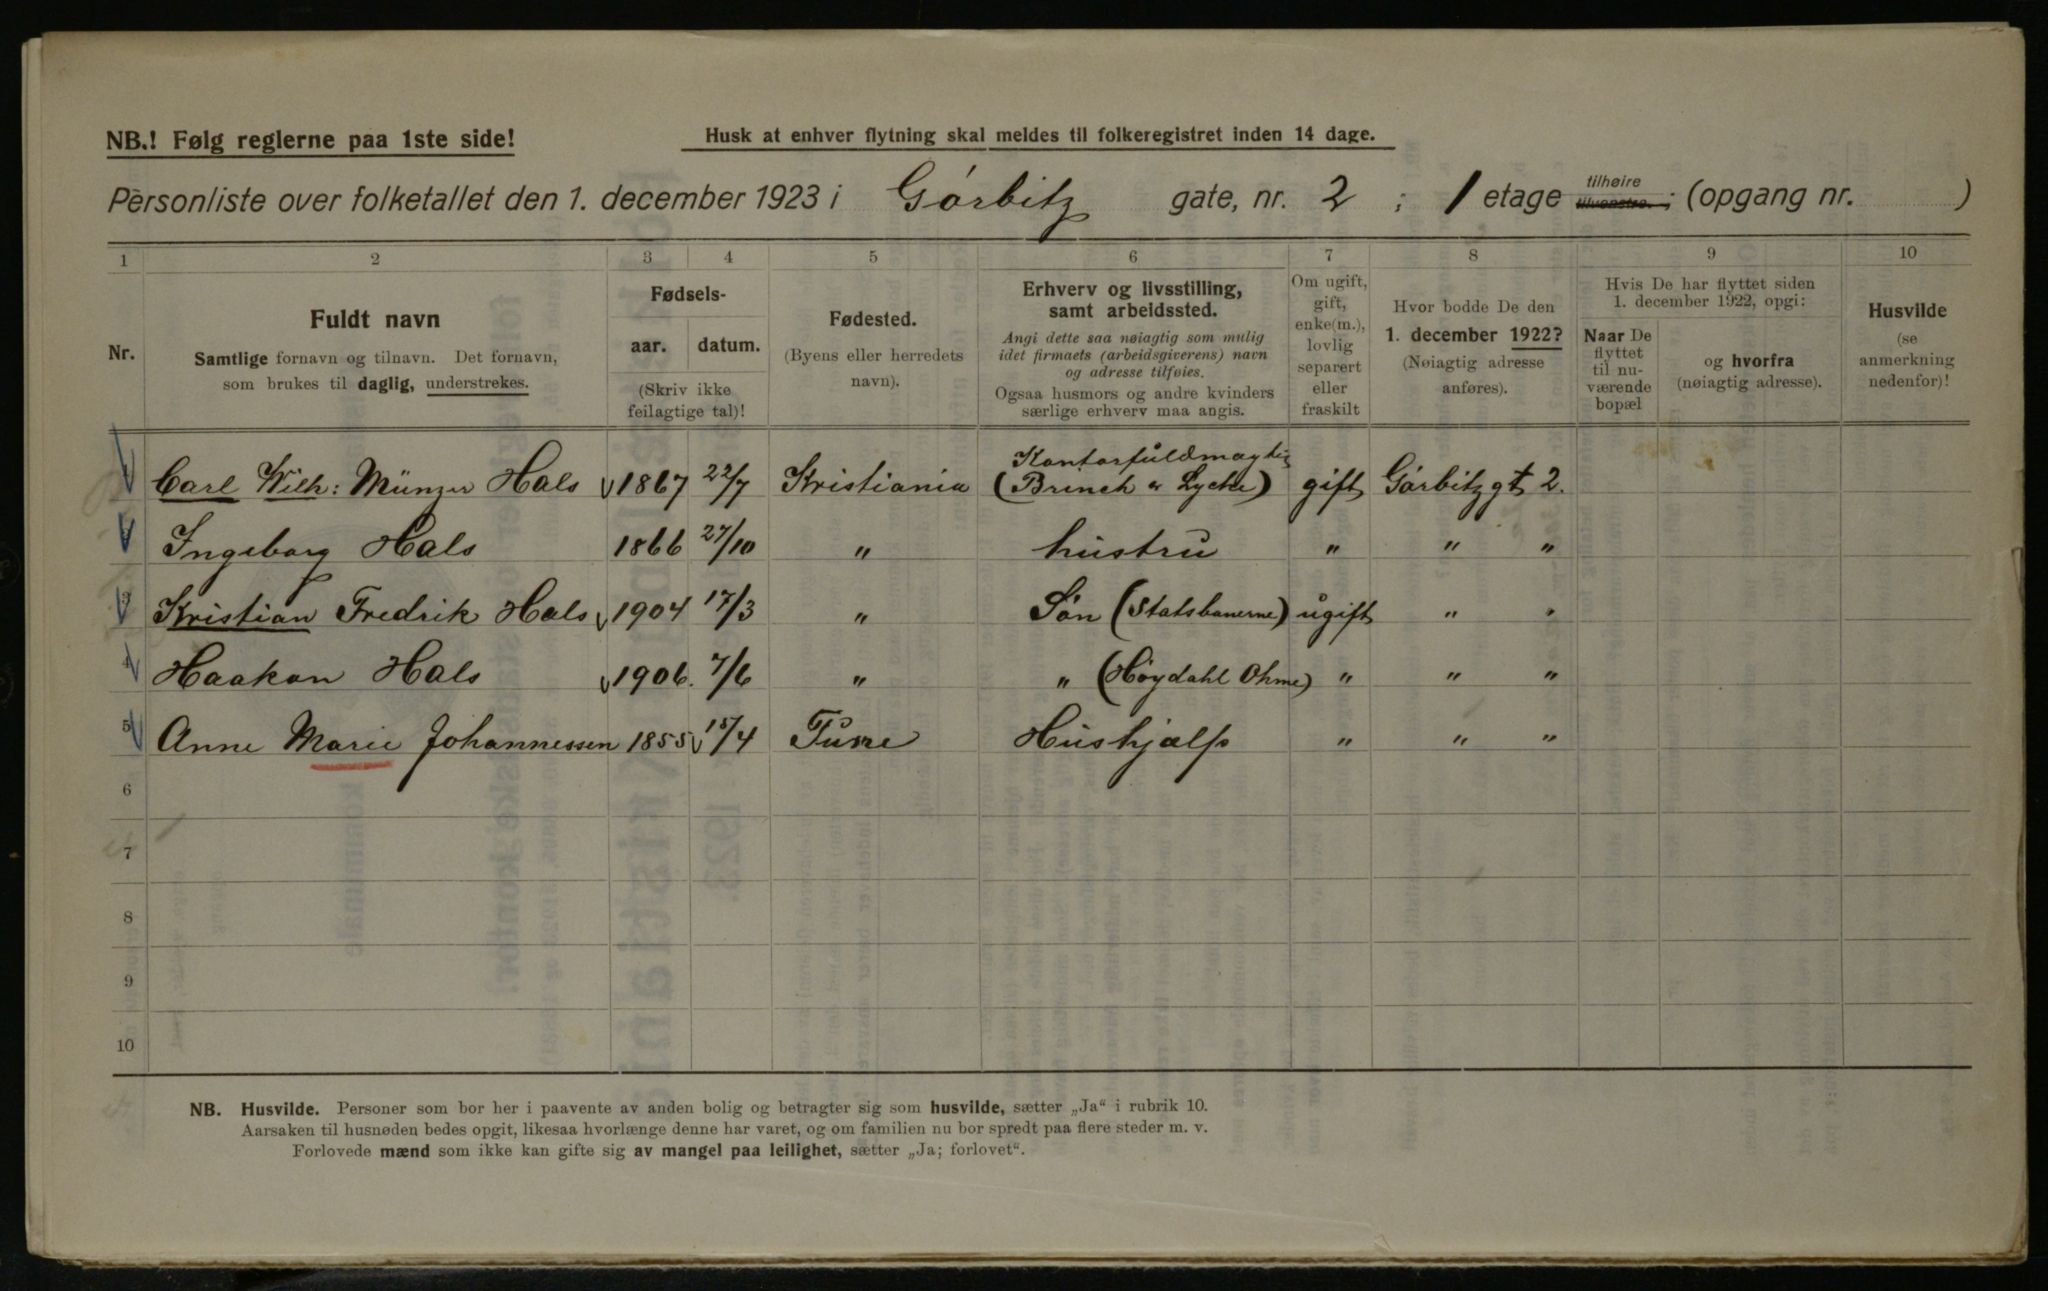 NB.! Følg reglerne paa 1ste side!
Husk at enhver flytning skal meldes til folkeregistret inden 14 dage.
Personliste over folketallet den 1. december 1923 i Gørbitz gate, nr. 2 ; 1 etage tilhøire tilvenstre. ; (opgang nr. )
1 2 3 4 5 6 7 8 9 10
Nr.
Fuldt navn
Samtlige fornavn og tilnavn. Det fornavn,
som brukes til daglig, understrekes.
Fødsels-
aar. datum.
(Skriv ikke
feilagtige tal)!
Fødested.
(Byens eller herredets
navn).
Erhverv og livsstilling,
samt arbeidssted.
Angi dette saa nøiagtig som mulig
idet firmaets (arbeidsgiverens) navn
og adresse tilføies.
Ogsaa husmors og andre kvinders
særlige erhverv maa angis.
Om ugift,
gift,
enke(m.),
lovlig
separert
eller
fraskilt
Hvor bodde De den
1. december 1922?
(Nøiagtig adresse
anføres).
Hvis De har flyttet siden
1. december 1922, opgi:
Naar De
flyttet
til nu-
værende
bopæl
og hvorfra
(nøiagtig adresse).
Husvilde
(se
anmerkning
nedenfor)!
Kontorfuldmægtig
1 Carl Wilh: Münzer Hals 1867 22/7 Kristiania (Brinch & Lycke) gift Gørbitzgt 2.
2 Ingeborg Hals 1866 27/10 " hustru " " "
3 Kristian Fredrik Hals 1904 17/3 " Søn (Statsbanerne) ugift " "
4 Haakon Hals 1906. 7/6 " " (Høydahl Ohme) " " "
5 Anne Marie Johannessen 1855 15/4 Furre Hushjælp " " "
6
7
8
9
10
NB. Husvilde. Personer som bor her i paavente av anden bolig og betragter sig som husvilde, sætter „Ja“ i rubrik 10.
Aarsaken til husnøden bedes opgit, likesaa hvorlænge denne har varet, og om familien nu bor spredt paa flere steder m. v.
Forlovede mænd som ikke kan gifte sig av mangel paa leilighet, sætter „Ja; forlovet“.